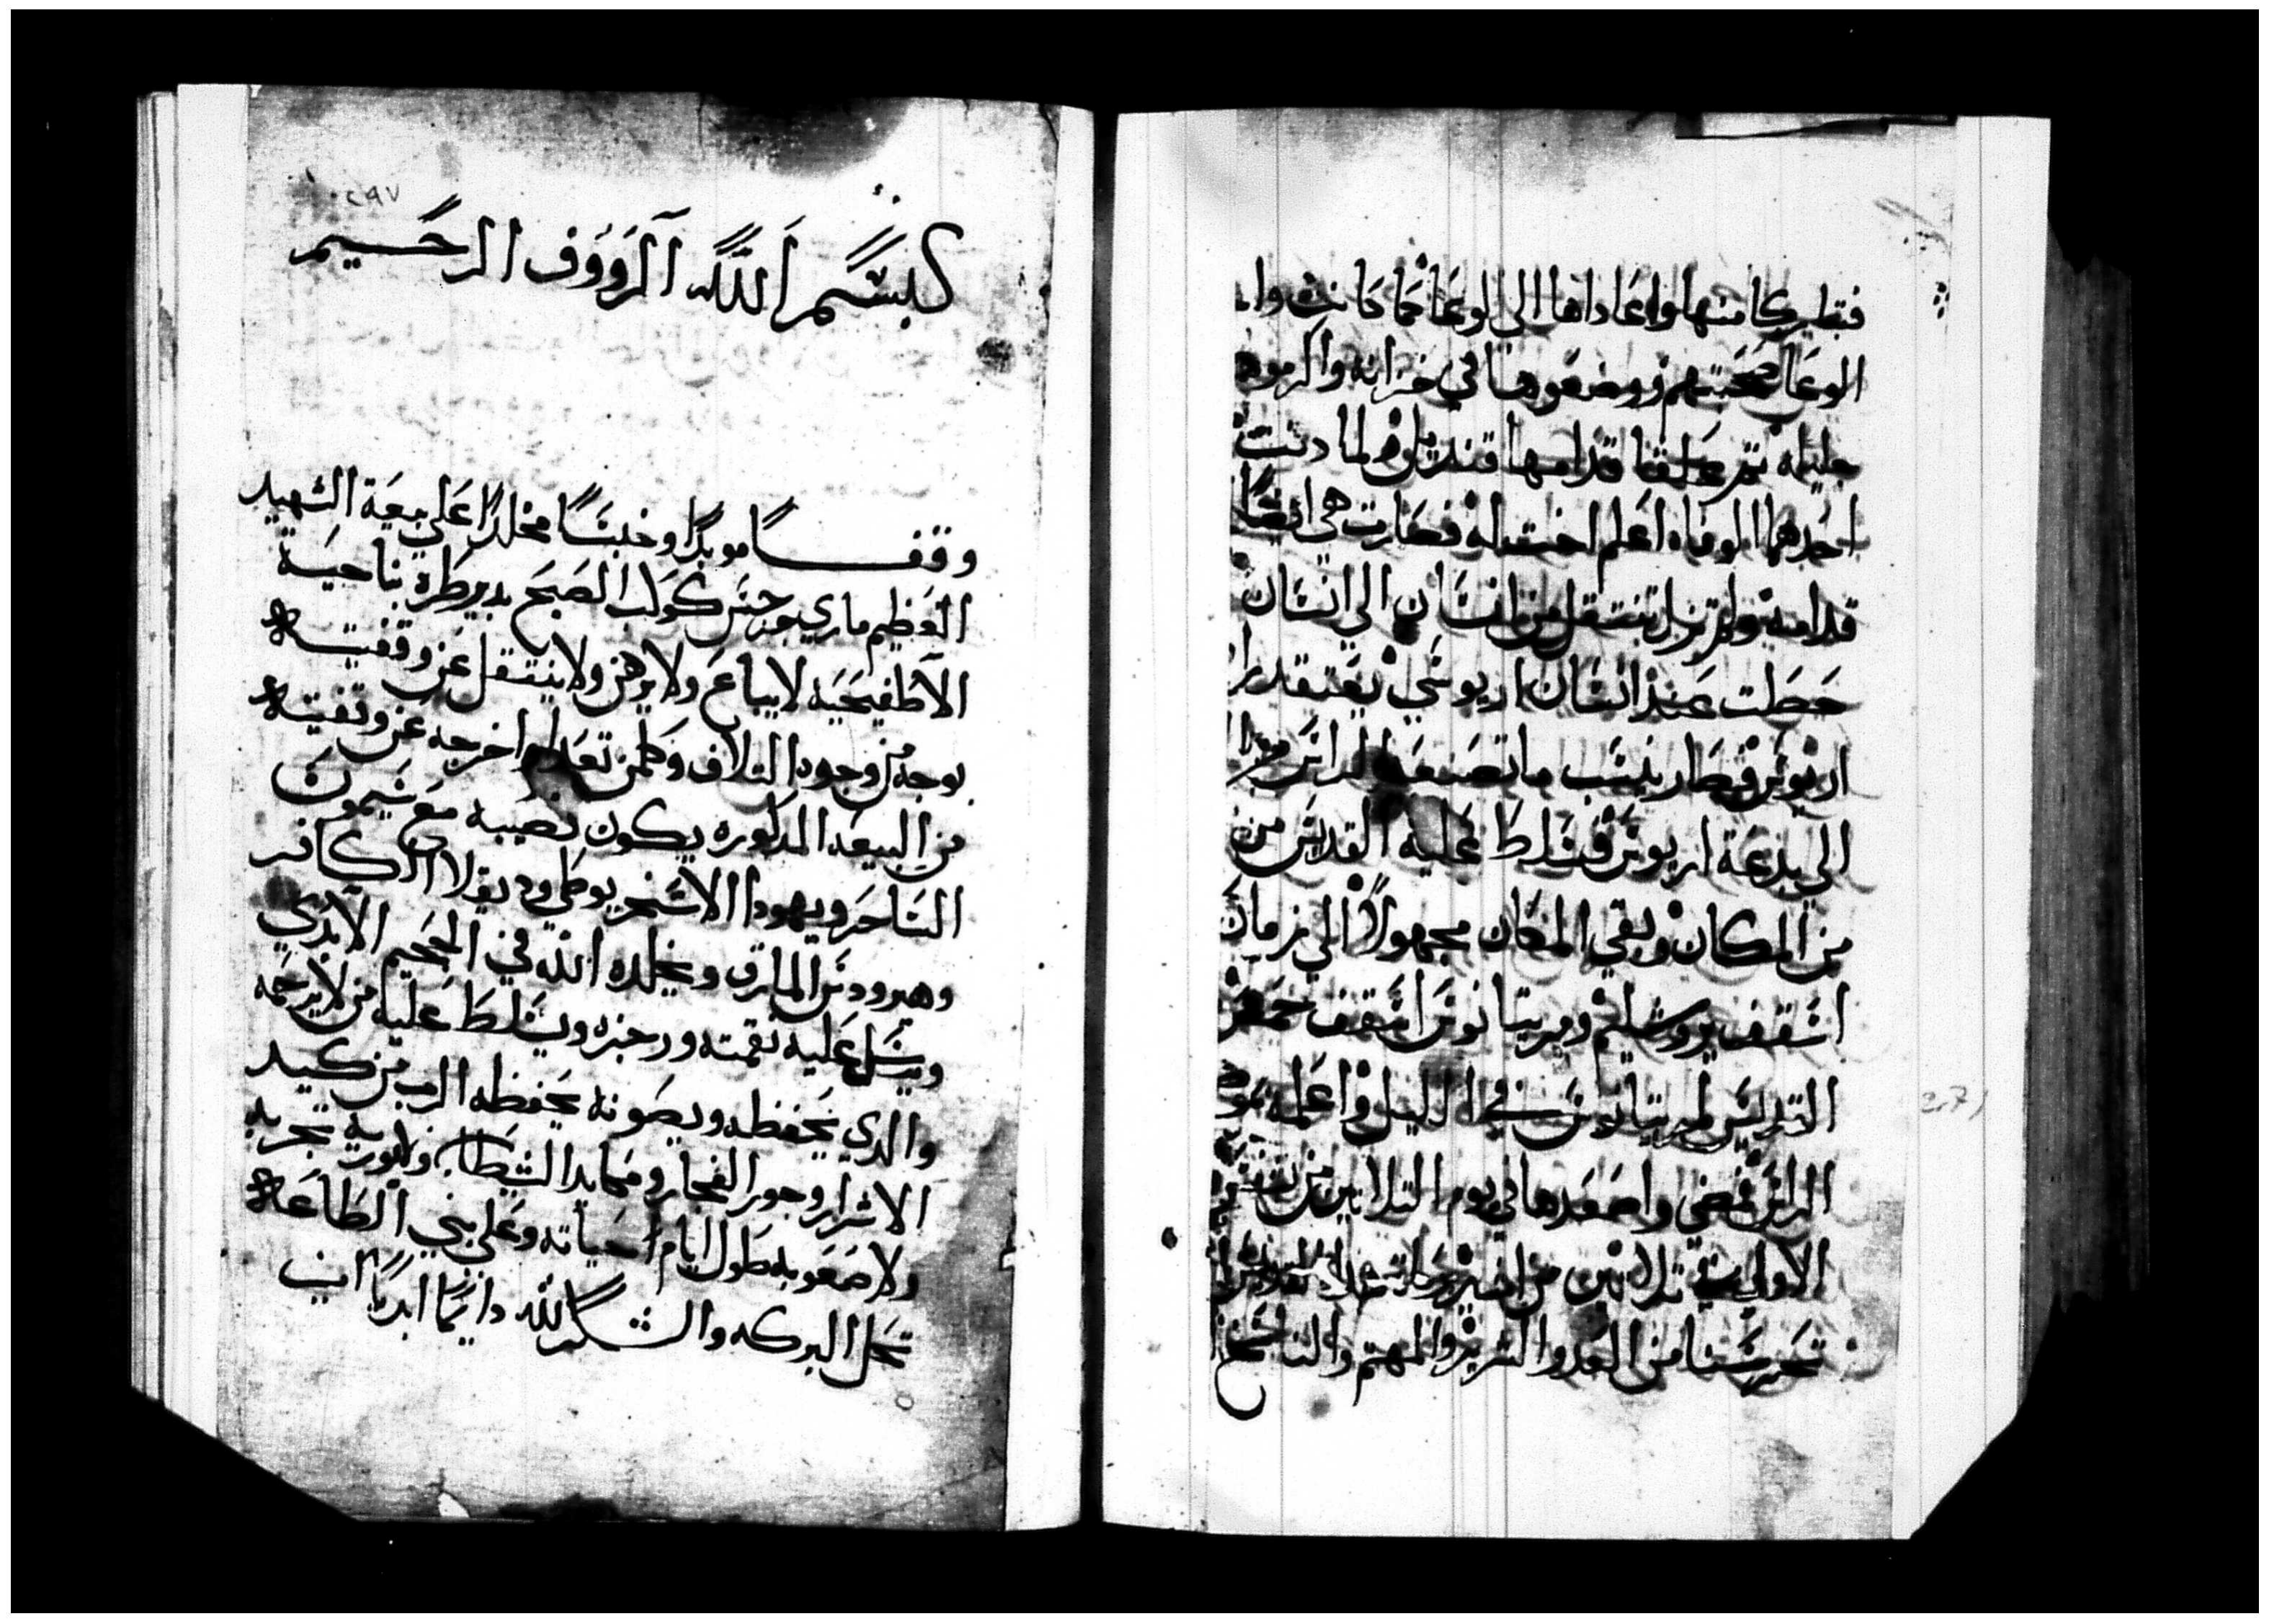 فتباركا منها واعاداها الى الوعا كما كانت وا
الوعا صحبتهم ووضعوها في خزانه واكرموها
جليله تم علقا قدامها قنديل ولما دنت
احدهما الوفاه اعلم اخت له فصارت هي ايضا
قدامه ولم تزل تنتقل من انسان الي انسان
حطت عند انسان اريوسي يعتقد را
اريوس فصار ينسب ما تصنعه الراس من
الي بدعة اريوس فسلط عليه القديس من
من المكان وبقي المكان مجهولاً الي زمان
اسقف يروشليم ومريتانوس اسقف حمص
القديس لمريتانوس في الليل واعلمه بمو
الراس فمضي واصعدها في يوم التلاتين من
الاولي في تلاتين من امشير
تحرسنا من العدو الشرير والمهتم والناسخ
٢٩٧
بسم الله الرووف الرحيم
وقفاً موبداً وحبساً مخلداً علي بيعة الشهيد
العظيم ماري جرجس كوكب الصبح بدير طره بناحية
الاطفيحيه لايباع ولا يرهن ولا ينتقل عن وقفيته
بوجه من وجوه التلاف وكلمن تعدا واخرجه عن وقفيته
من البيعه المدكوره يكون نصيبه مع سيمون
الساحر ويهودا الاسخريوطي وديقلا الكافر
وهيرودس المارق ويخلده الله في الجحيم الابدي
ويرسل عليه نقمته ورجزه ويسلط عليه من لا يرحمه
والدي يحفظه ويصونه يحفظه الرب من كيد
الاشرار وجور الفجار ومكايد الشيطان ولايوريه تجربه
ولا صعوبه طول ايام حياته وعلى بني الطاعه
تحل البركه والشكر لله دايماً ابدياً امين